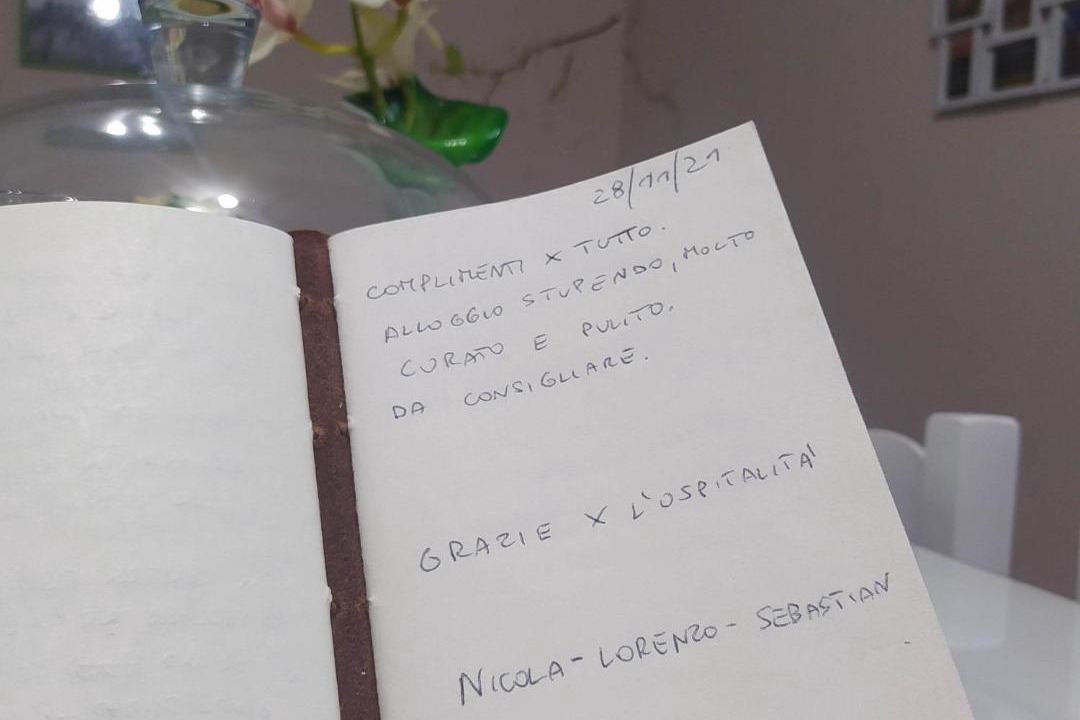 28/11/21
COMPLIMENTI X TUTTO.
ALLOGGIO STUPENDO, MOLTO
CURATO E PULITO.
DA CONSIGLIARE.
GRAZIE X L'OSPITALITA'
NICOLA - LORENZO - SEBASTIAN